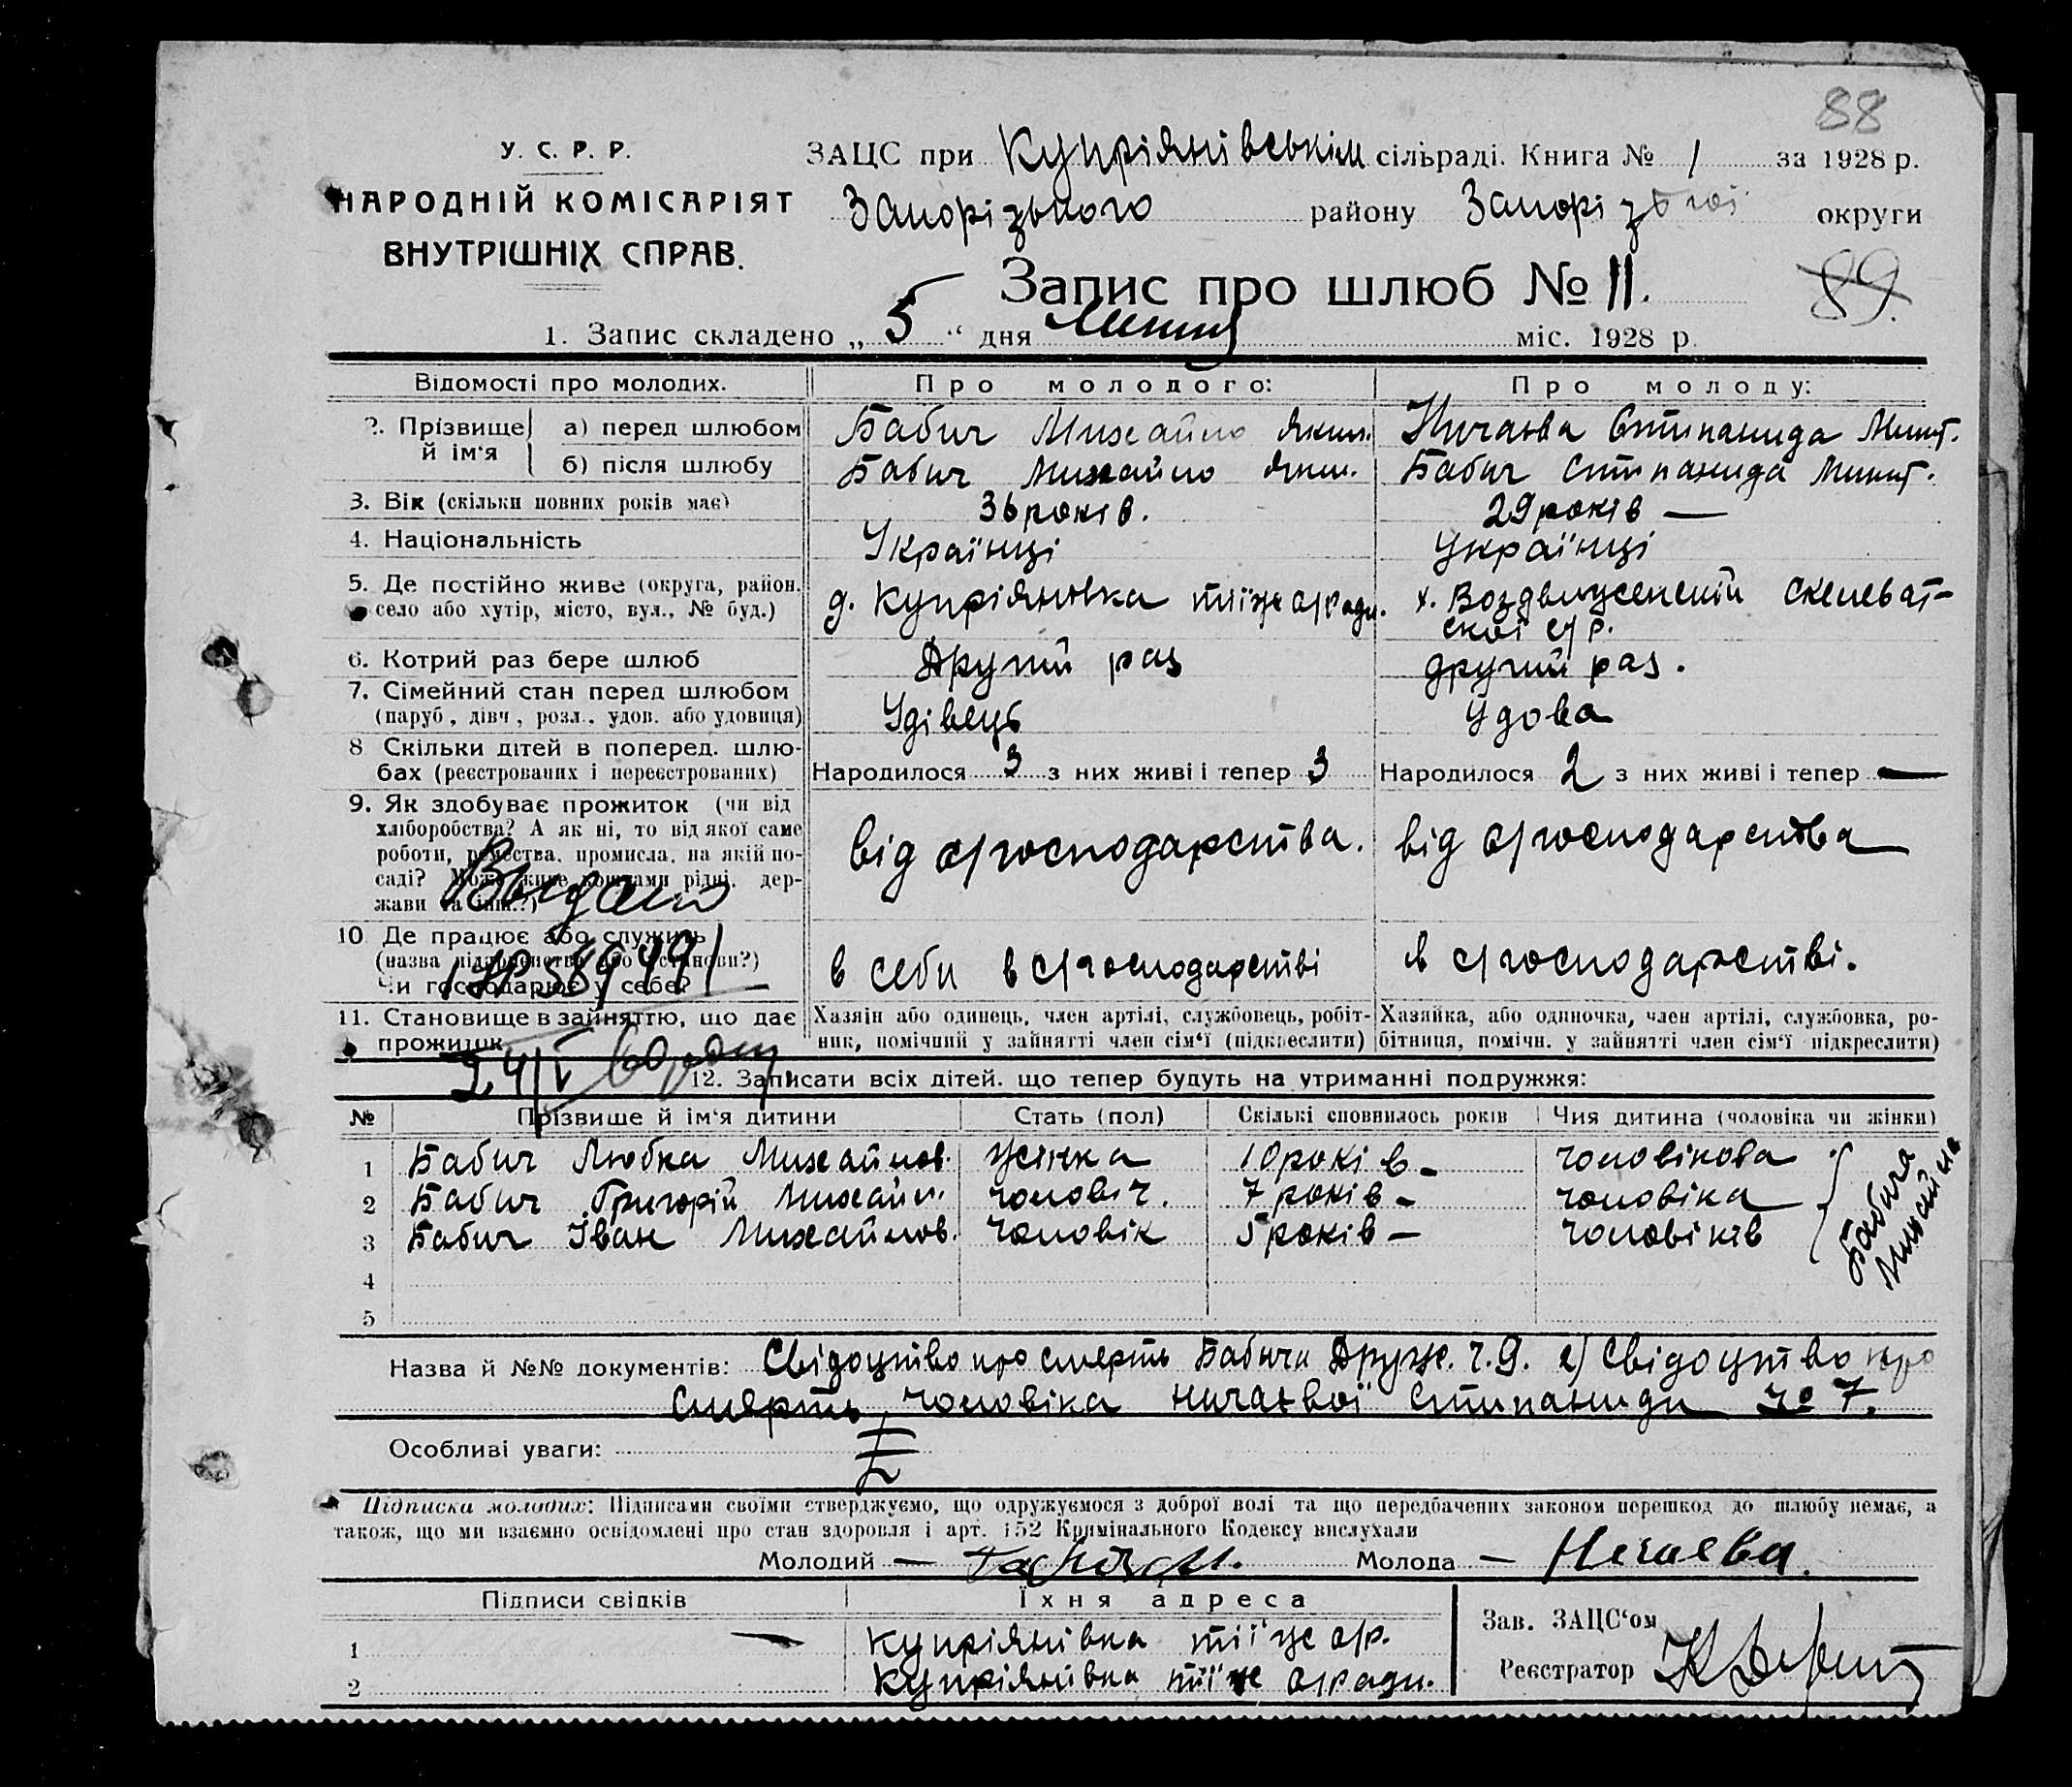 88
У. С. Р. Р.
НАРОДНІЙ КОМІСАРІЯТ
ВНУТРІШНІХ СПРАВ.
ЗАЦС при Купріянівськім сільраді. Книга № 1 за 1928 р.
Запорізького району Запорізької округи
Запис про шлюб № 11.
89.
1. Запис складено „ 5 “ дня Липня міс. 1928 р.
Відомості про молодих. Про молодого: Про молоду:
2. Прізвище й ім‘я а) перед шлюбом Бабич Михайло Яким. Ничаєва Степанида Микит.
б) після шлюбу Бабич Михайло Яким. Бабич Степанида Микит.
3. Вік (скільки повних років має) 36 років. 29 років —
4. Національність Українці Українці
5. Де постійно живе (округа, район, село або хутір, місто, вул., № буд.) д. Купріяновка тіїж с/ради. х. Воздвиженский Скелеват-
ской с/р.
6. Котрий раз бере шлюб Другий раз другий раз.
7. Сімейний стан перед шлюбом
(паруб, дівч, розл., удов. або удовиця) Удівець Удова
8 Скільки дітей в поперед. шлю-
бах (реєстрованих і нереєстрованих) Народилося 3 з них живі і тепер 3 Народилося 2 з них живі і тепер —
9. Як здобуває прожиток (чи від
хліборобства? А як ні, то від якої саме
роботи, ремества, промисла, на якій по-
саді? Може живе коштами рідні, дер-
жави та інш.?) від с/господарства. від с/господарства
Выдано
10 Де працює або служить
(назва підприємства або установи?)
Чи господарює у себе? в себи в с/господарстві в с/господарстві.
11. Становище в зайняттю, що дає
прожиток
Хазяін або одинець, член артілі, службовець, робіт-
ник, помічний у зайнятті член сім‘ї (підкреслити)
Хазяйка, або одиночка, член артілі, службовка, ро-
бітниця, помічн. у зайнятті член сім‘ї підкреслити)
12. Записати всіх дітей, що тепер будуть на утриманні подружжя:
№ Прізвище й ім‘я дитини Стать (пол) Скількі сповнилось років Чия дитина (чоловіка чи жінки)
1 Бабич Любка Михайлов. жінка 10 років — чоловікова
2 Бабич Григорій Михайл. чоловіч. 7 років — чоловіка
3 Бабич Іван Михайлов. чоловік 5 років — чоловіків
Бабича
Михайла
4
5
Назва й №№ документів: Свідоцтво про смерть Бабичи Друж. ч. 9. 2) Свідоцтво про
смерть чоловіка ничаєвої Степаниди № 7.
Особливі уваги:
Підписка молодих: Підписами своїми стверджуємо, що одружуємося з доброї волі та що передбачених законом перешкод до шлюбу немає, а
також, що ми взаємно освідомлені про стан здоровля і арт. 152 Кримінального Кодексу вислухали
Молодий — Молода — Нечаева.
Підписи свідків Їхня адреса
1 Купріянівка тіїже с/р.
2 Купріянівка тіїже с/ради.
Зав. ЗАЦС‘ом
Реєстратор